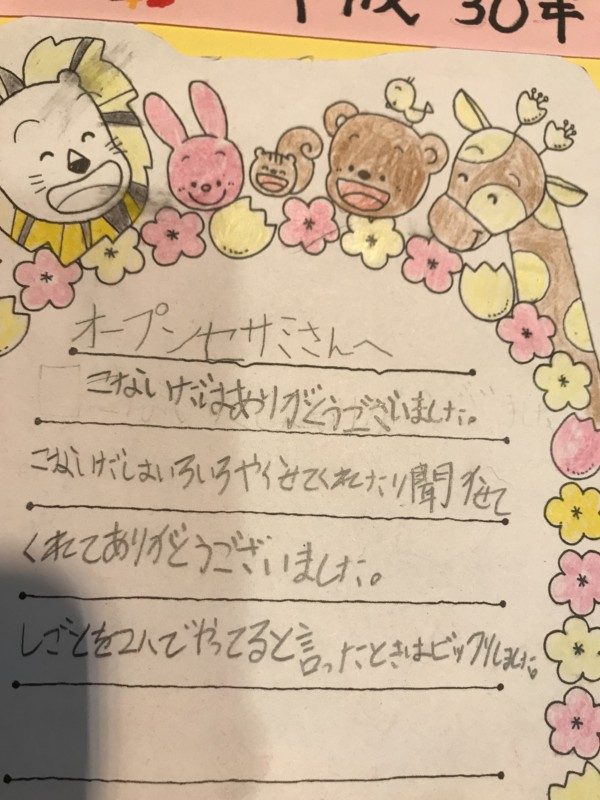 平成30年
オープンセサミさんへ
こないだはありがとうございました。
こないだはいろいろやらせてくれたり聞かせて
くれてありがとうございました。
しごとを2人でやってると言ったときはビックリしました。